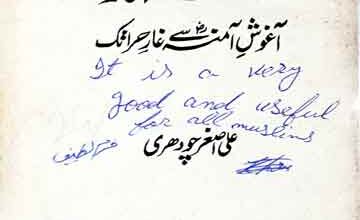 آغوشِ آمنہؓ سے غارِ حرا تک
It is a very
good and useful
for all muslims
علی اصغر چودھری